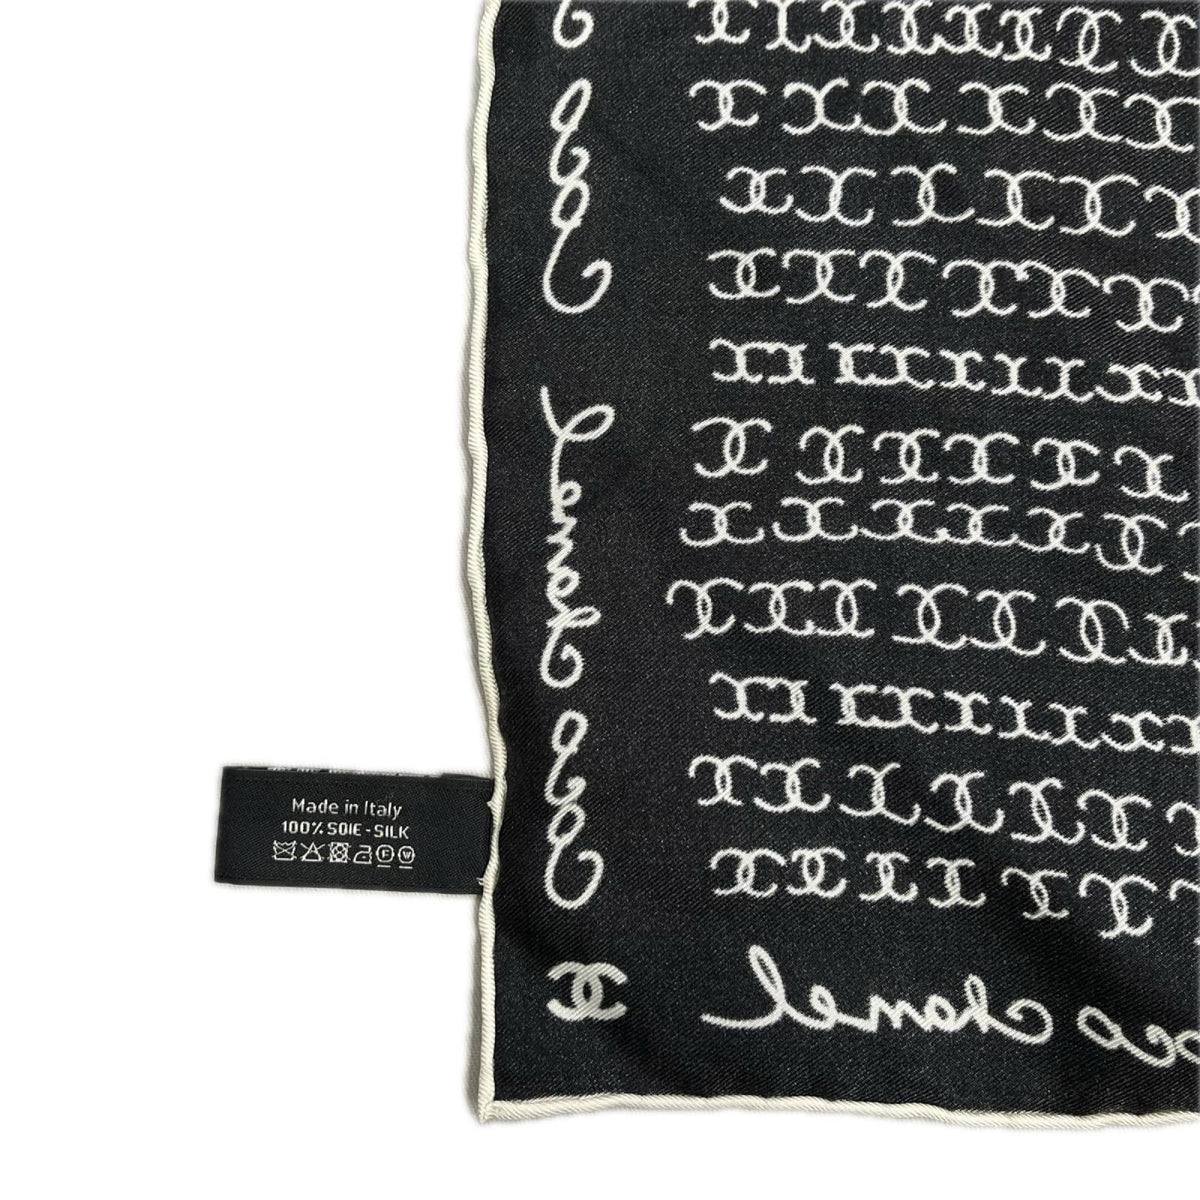 Made in Italy
100% SOIE - SILK
coco
chanel
coco
coco chanel